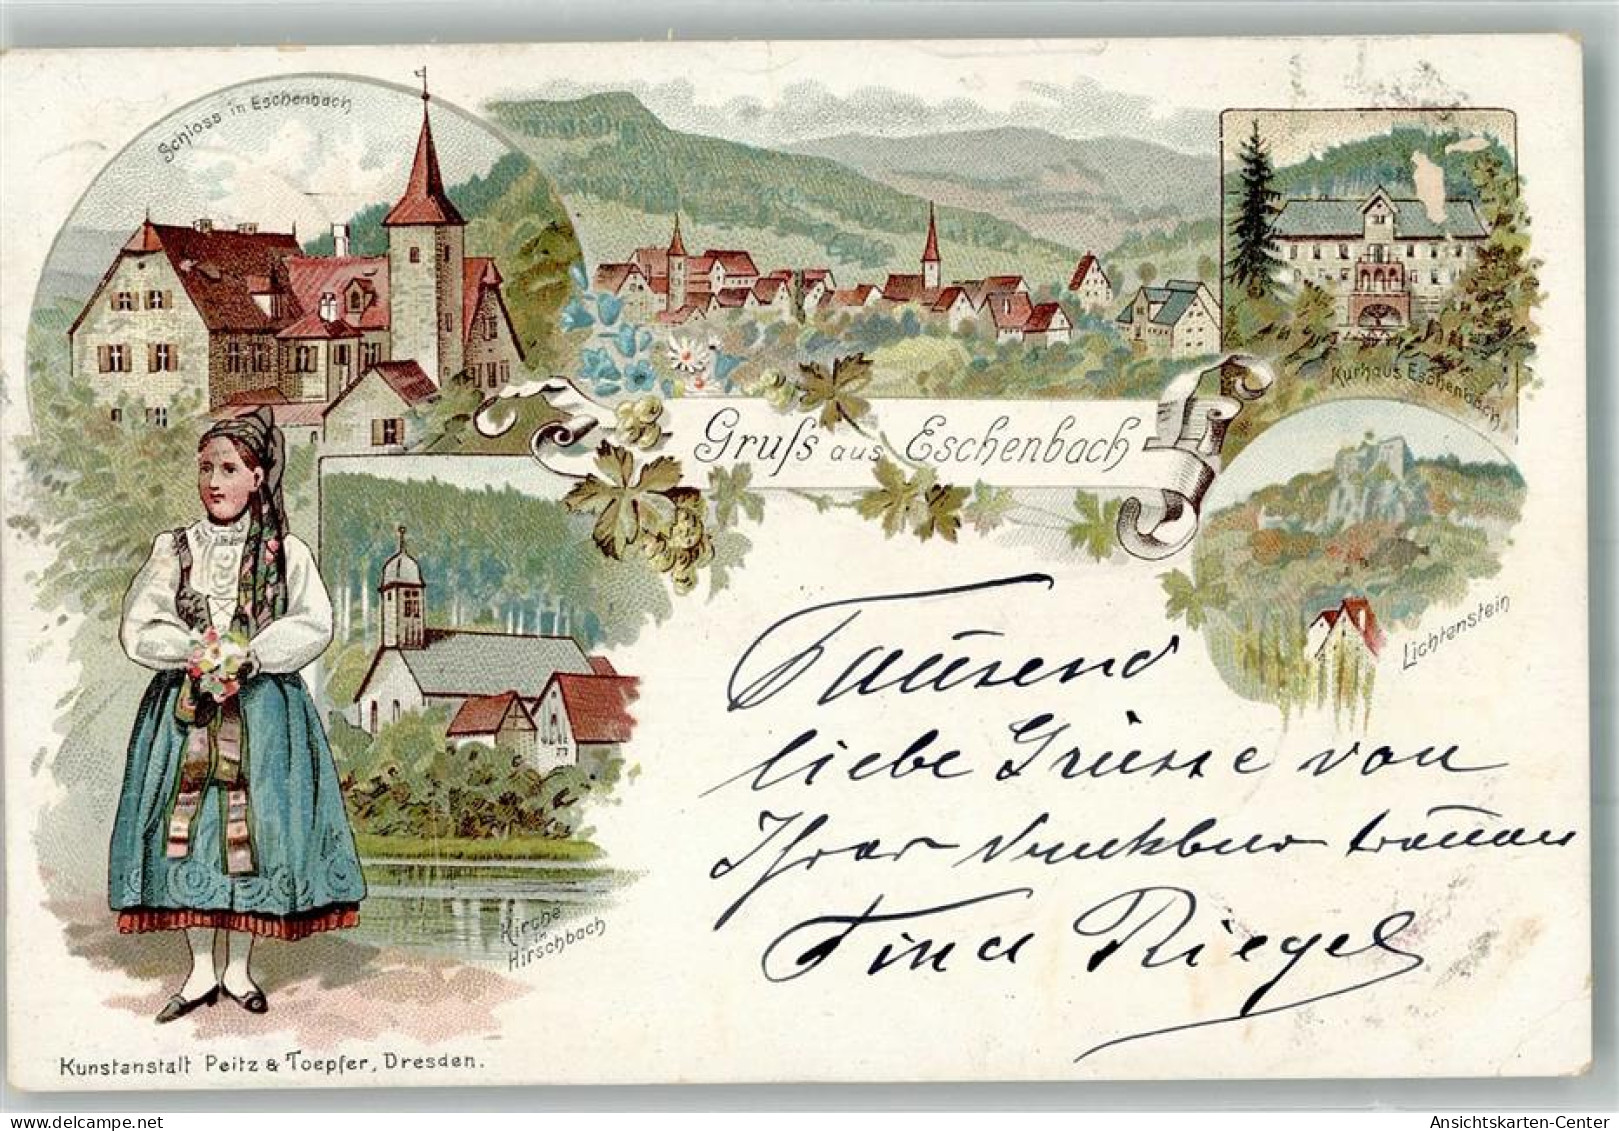 Schloss in Eschenbach
Gruſs aus Eschenbach
Kurhaus Eschenbach
Lichtenstein
Kirche
in
Hirschbach
Tausend
liebe Grüsse von
Ihrer dankbar treuen
Tina Riegel
Kunstanstalt Peitz & Toepfer, Dresden.
Ansichtskarten-Center